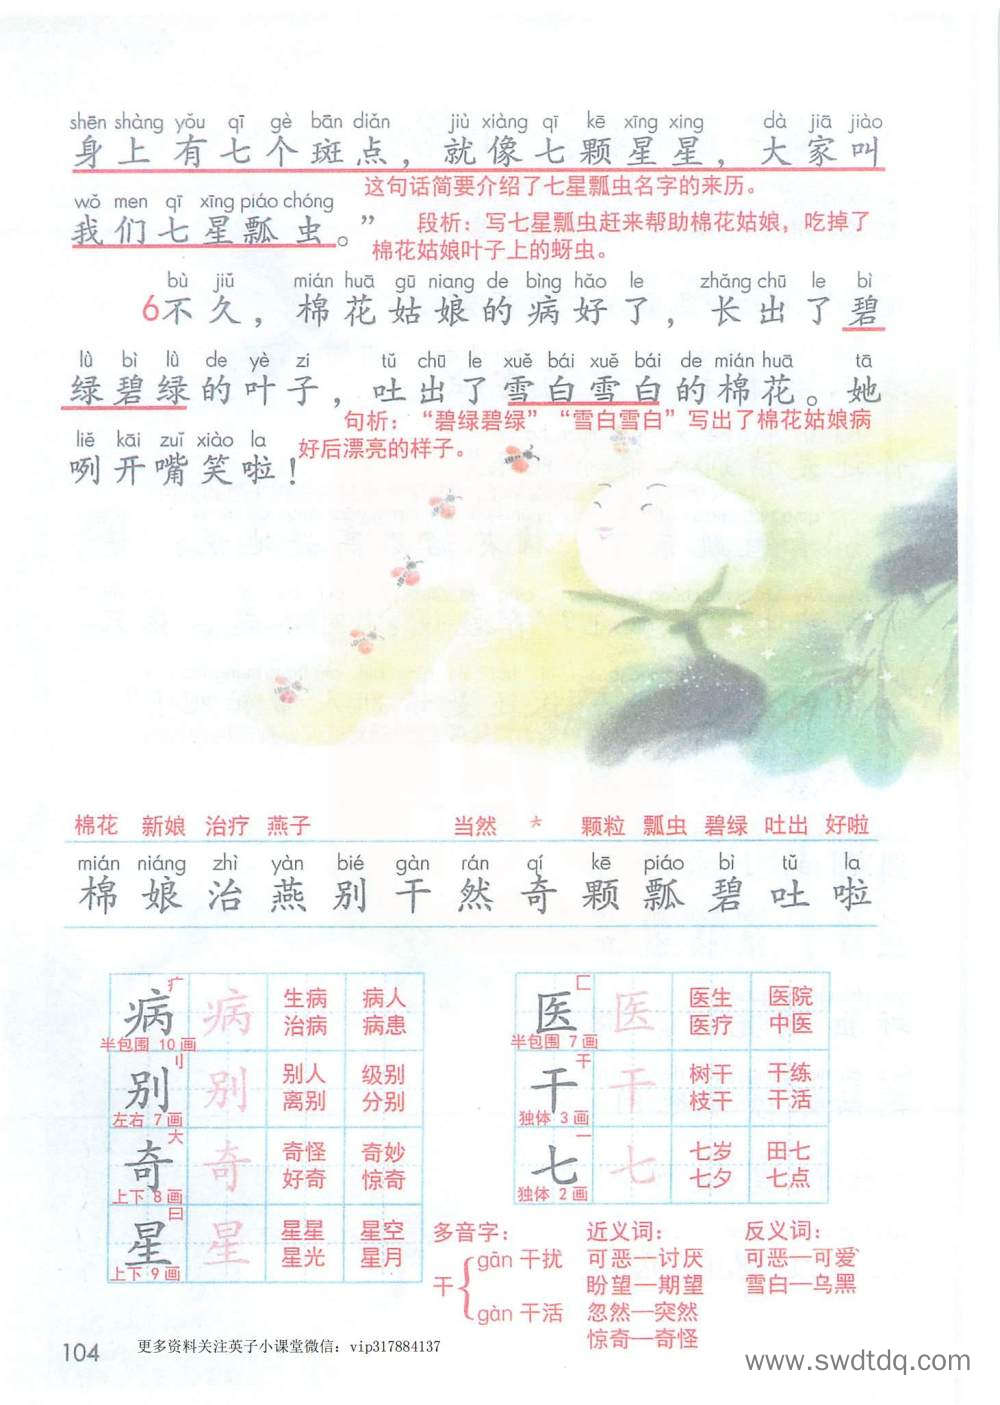 shēn shàng yǒu qī gè bān diǎn jiù xiàng qī kē xīng xing dà jiā jiào
身上有七个斑点，就像七颗星星，大家叫
这句话简要介绍了七星瓢虫名字的来历。
wǒ men qī xīng piáo chóng
我们七星瓢虫。”
段析：写七星瓢虫赶来帮助棉花姑娘，吃掉了
棉花姑娘叶子上的蚜虫。
bù jiǔ mián huā gū niang de bìng hǎo le zhǎng chū le bì
6不久，棉花姑娘的病好了，长出了碧
lǜ bì lǜ de yè zi tǔ chū le xuě bái xuě bái de mián huā tā
绿碧绿的叶子，吐出了雪白雪白的棉花。她
句析：“碧绿碧绿”“雪白雪白”写出了棉花姑娘病
好后漂亮的样子。
liě kāi zuǐ xiào la
咧开嘴笑啦！
棉花 新娘 治疗 燕子 当然 * 颗粒 瓢虫 碧绿 吐出 好啦
mián niáng zhì yàn bié gàn rán qí kē piáo bì tǔ la
棉 娘 治 燕 别 干 然 奇 颗 瓢 碧 吐 啦
疒
病 病 生病 病人
治病 病患
半包围 10 画
刂
别 别 别人 级别
离别 分别
左右 7 画
大
奇 奇 奇怪 奇妙
好奇 惊奇
上下 8 画
日
星 星 星星 星空
星光 星月
上下 9 画
匚
医 医 医生 医院
医疗 中医
半包围 7 画
干
干 干 树干 干练
枝干 干活
独体 3 画
一
七 七 七岁 田七
七夕 七点
独体 2 画
多音字：
干
gān 干扰
gàn 干活
近义词：
可恶—讨厌
盼望—期望
忽然—突然
惊奇—奇怪
反义词：
可恶—可爱
雪白—乌黑
104
更多资料关注英子小课堂微信：vip317884137
www.swdtdq.com